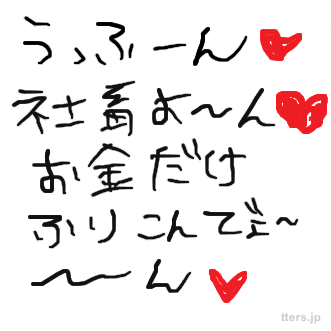 うっふーん♥
社畜よ〜ん♥
お金だけ
ふりこんでぇ〜
〜ん♥
tters.jp